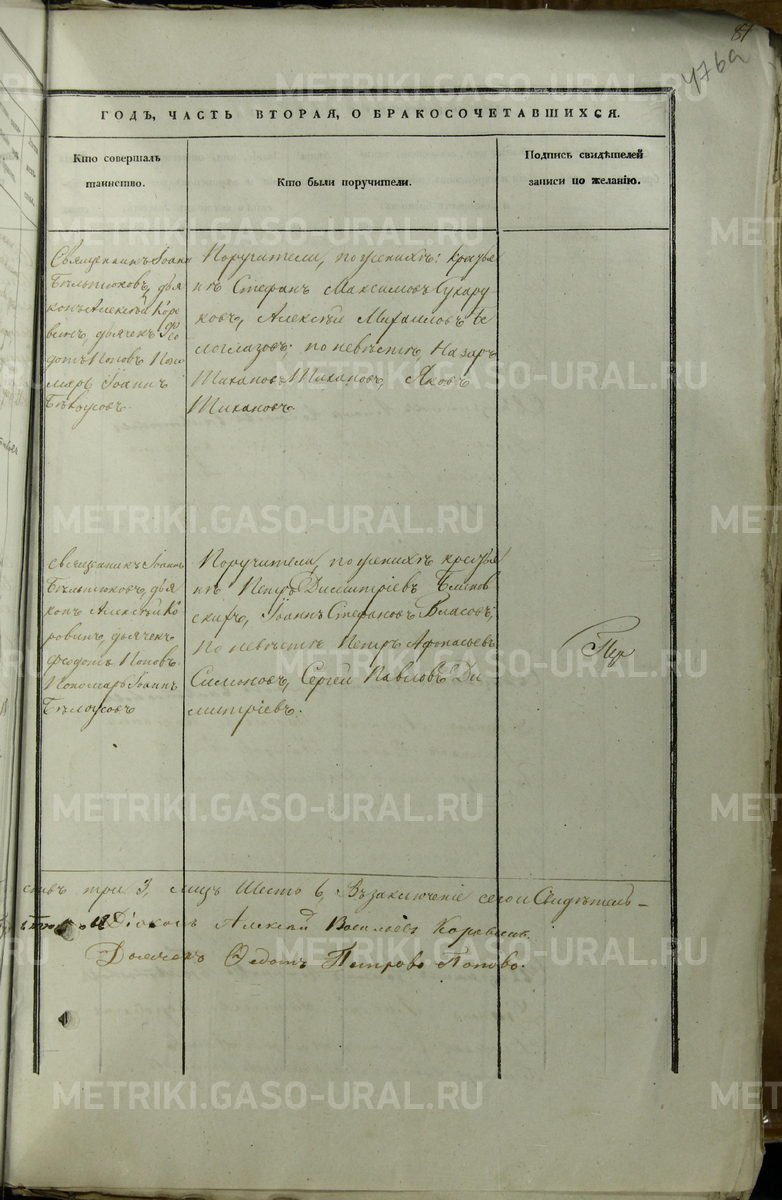 81
476а
ГОДЪ, ЧАСТЬ ВТОРАЯ, О БРАКОСОЧЕТАВШИХСЯ.
Кто совершалъ
таинство.
Кто были поручители.
Подпись свидѣтелей
записи по желанію.
Священникъ Іоаннъ
дья
конъ Алексѣй Коро
винъ, дьячекъ Фео
дотъ Поповъ Поно
марь Іоаннъ
Бѣлоусовъ.
Поручители, по женихѣ: крестья
нѣ Стефанъ Максимовъ Сукару
ковъ, Алексѣй Михаиловъ Бе
логлазовъ; по невѣстѣ Назаръ
Тихановъ Тихановъ, Яковъ
Тихановъ.
священникъ Іоаннъ
дья
конъ Алексѣй Ко
ровинъ, дьячекъ
Феодотъ Поповъ.
Пономарь Іоаннъ
Бѣлоусовъ
Поручители, по женихѣ крестья
нѣ Петръ Димитріевъ
скихъ, Іоаннъ Стефановъ Власовъ;
по невѣстѣ Петръ Афонасьевъ
Симоновъ, Сергей Павловъ Ди
митріевъ.
три 3, лицъ Шесть 6, Въ заключеніе сего и Свидѣтель-
Діаконъ Алексѣй Васильевъ Коровинъ.
Дьячекъ Ѳедотъ Петровъ Поповъ.
METRIKI.GASO-URAL.RU